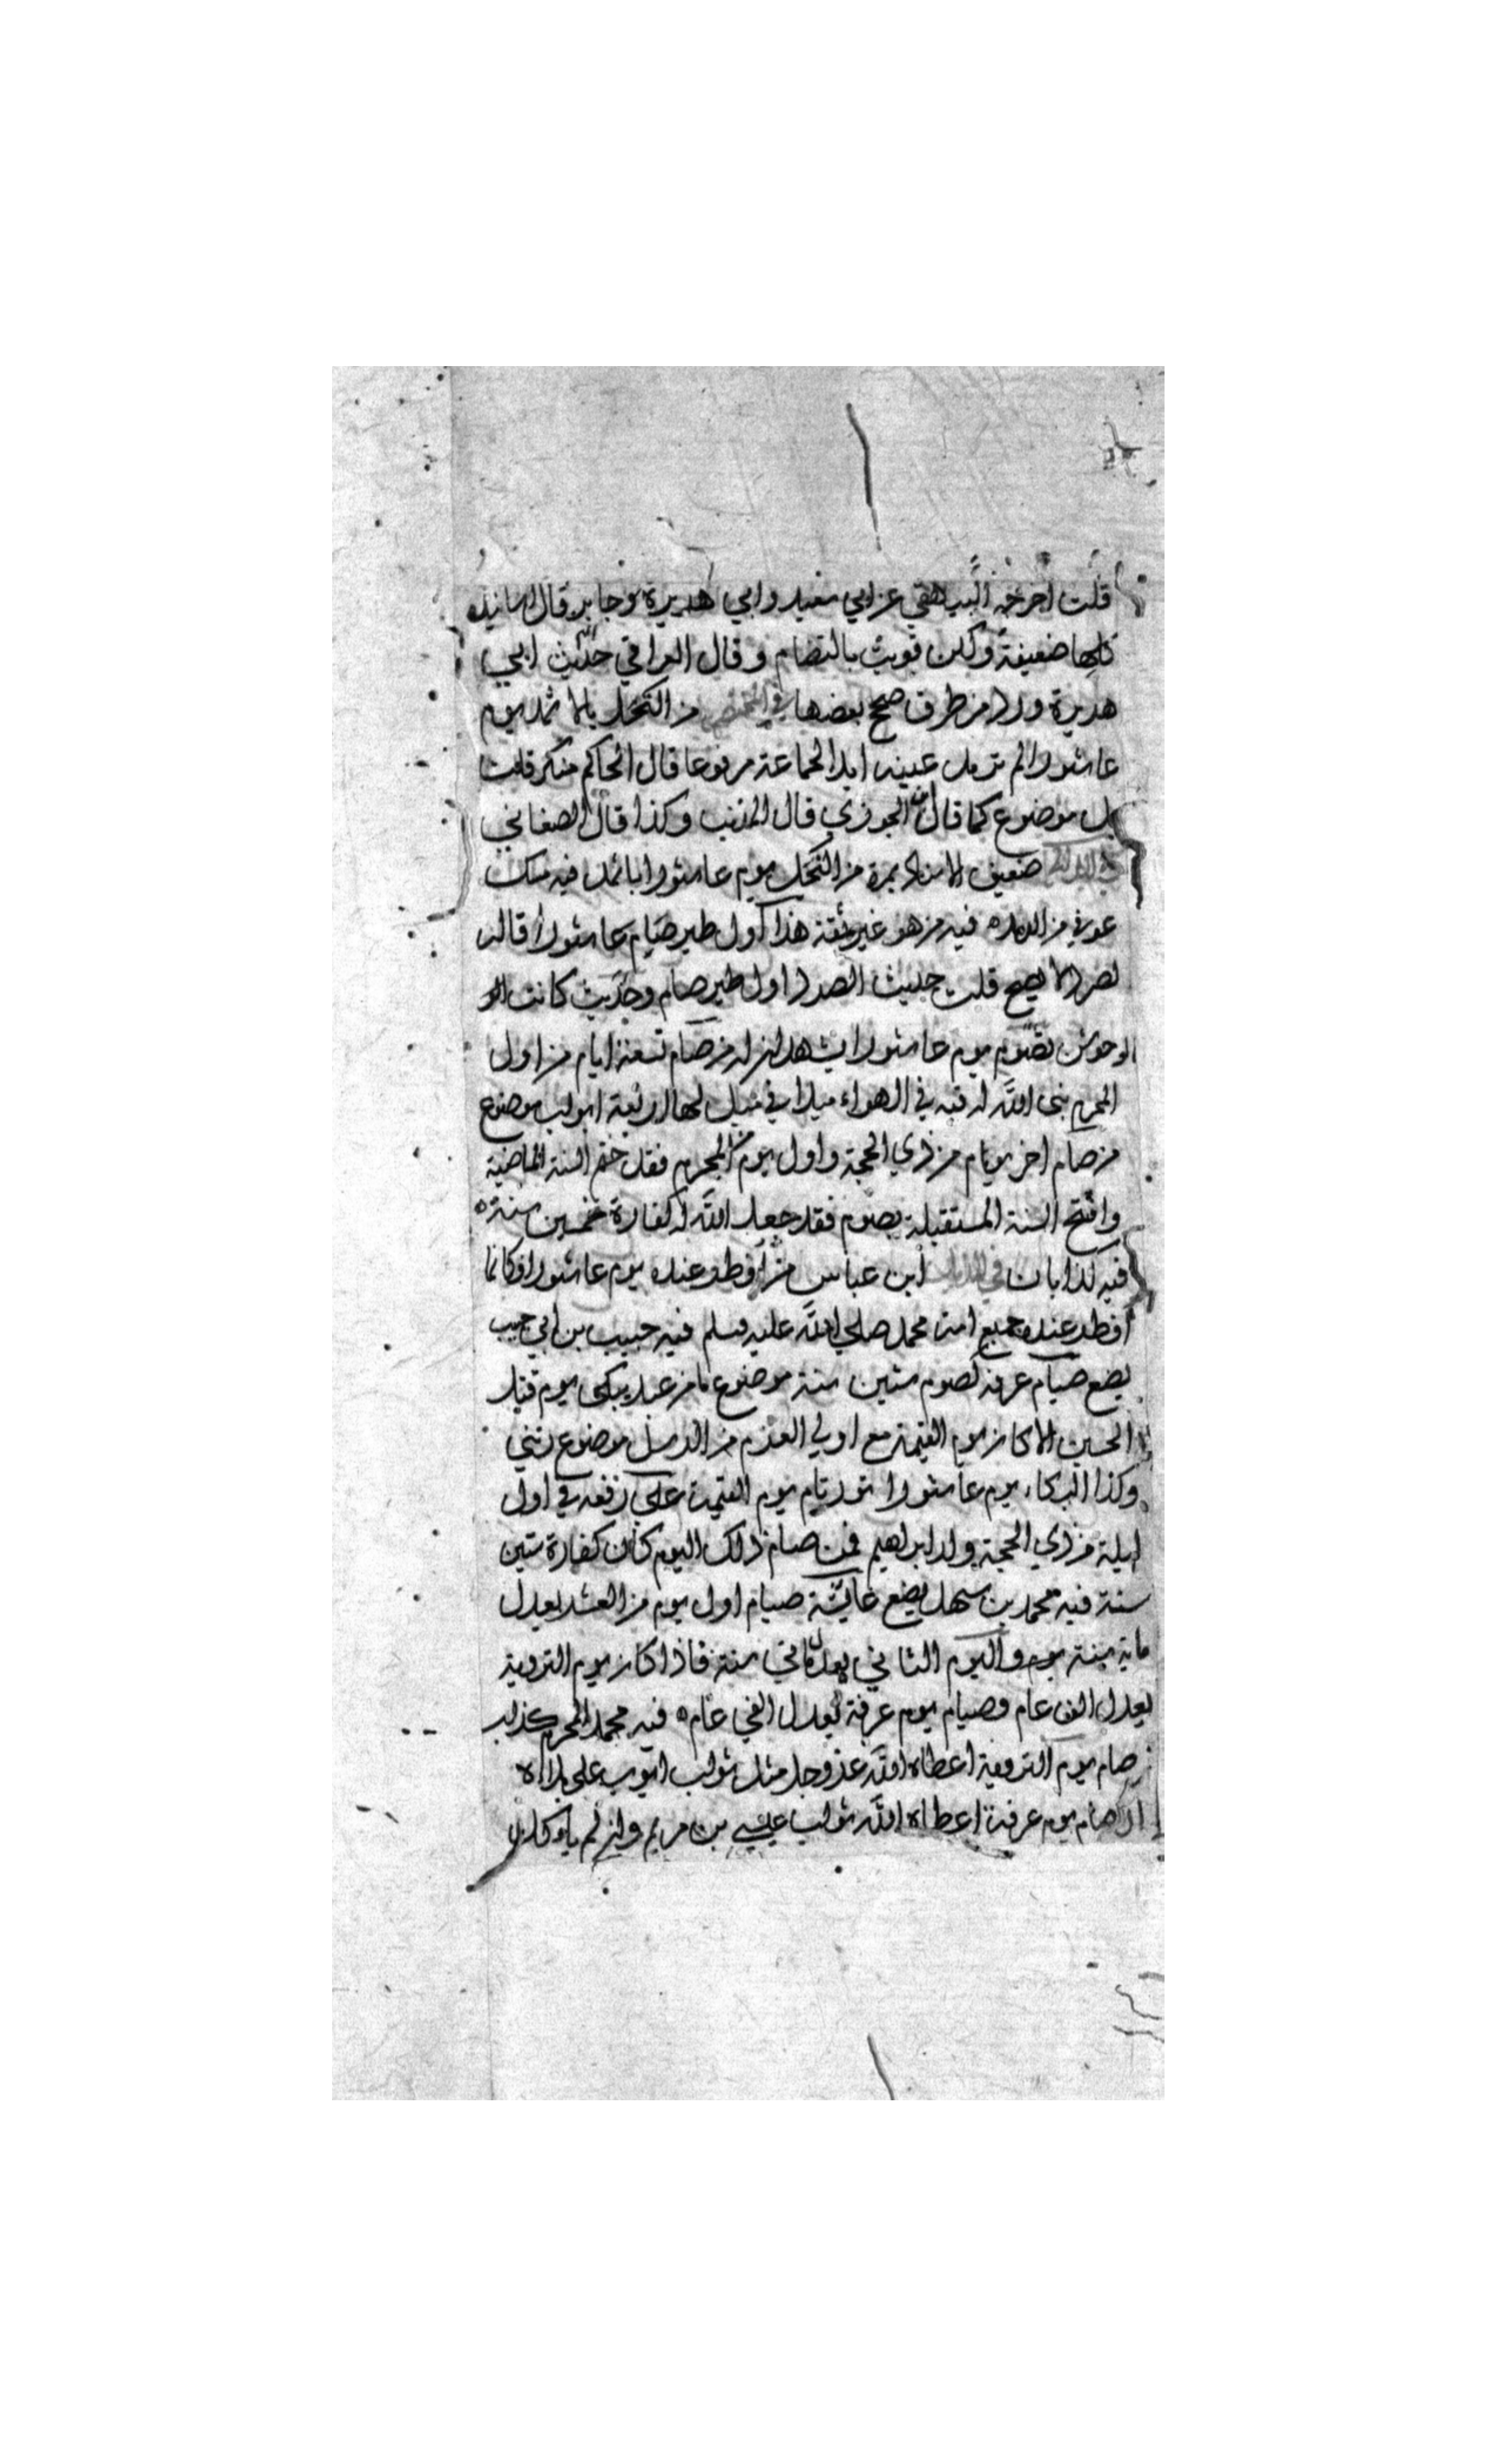 قلت اخرجه البيهقي عن ابي سعيد وابي هريرة وجابر قال اسانيده
كلها ضعيفة ولكن قويت بالتضام وقال العراقي حديث ابي
هريرة ورد من طرق صحح بعضها في المختصر من اكتحل بالاثمد يوم
عاشورا لم ترمد عينه ابدا لجماعة مرفوعا قال الحاكم منكر قلت
بل موضوع كما قال ابن الجوزي قال المذنب وكذا قال الصغاني
ضعيف الاسناد بمرة من اكتحل يوم عاشورا باثمد فيه مسك
عوفي من الرمده فيه من هو غير ثقة هذا اول طير صام عاشورا قاله
لصرد لا يصح قلت حديث الصرد اول طير صام وحديث كانت
الوحوش تصوم يوم عاشورا من صام تسعة ايام من اول
المحرم بنى الله له قبة في الهواء ميلا في ميل لها اربعة ابواب موضوع
من صام اخر يوم من ذي الحجة واول يوم من المحرم فقد ختم السنة الماضية
وافتتح السنة المستقبلة بصوم فقد جعل الله له كفارة خمسين سنة ه
فيه كذابان ابن عباس من افطر عنده يوم عاشورا فكانما
افطر عنده جميع امة محمد صلى الله عليه وسلم فيه حبيب بن ابي حبيب
يضع صيام عرفة كصوم ستين سنة موضوع ما من عبد يبكي يوم قتل
الحسين الا كان يوم القيمة مع اولي العزم من الرسل موضوع رتني
وكذا البكاء يوم عاشورا نور تام يوم القيمة على في اول
ليلة من ذي الحجة ولد ابراهيم فمن صام ذلك اليوم كان كفارة ستين
سنة فيه محمد بن سهل يضع عايشة صيام اول يوم من العشر يعدل
ماية سنة يوم واليوم الثاني يعدل ماتي سنة فاذا كان يوم التروية
يعدل الف عام وصيام يوم عرفة يعدل الفي عام ه فيه محمد المحرم كذاب
من صام يوم التروية اعطاه الله عز وجل مثل ثواب ايوب على بلاه
صام يوم عرفة اعطاه الله ثواب عيسى بن مريم وان لم ياكل